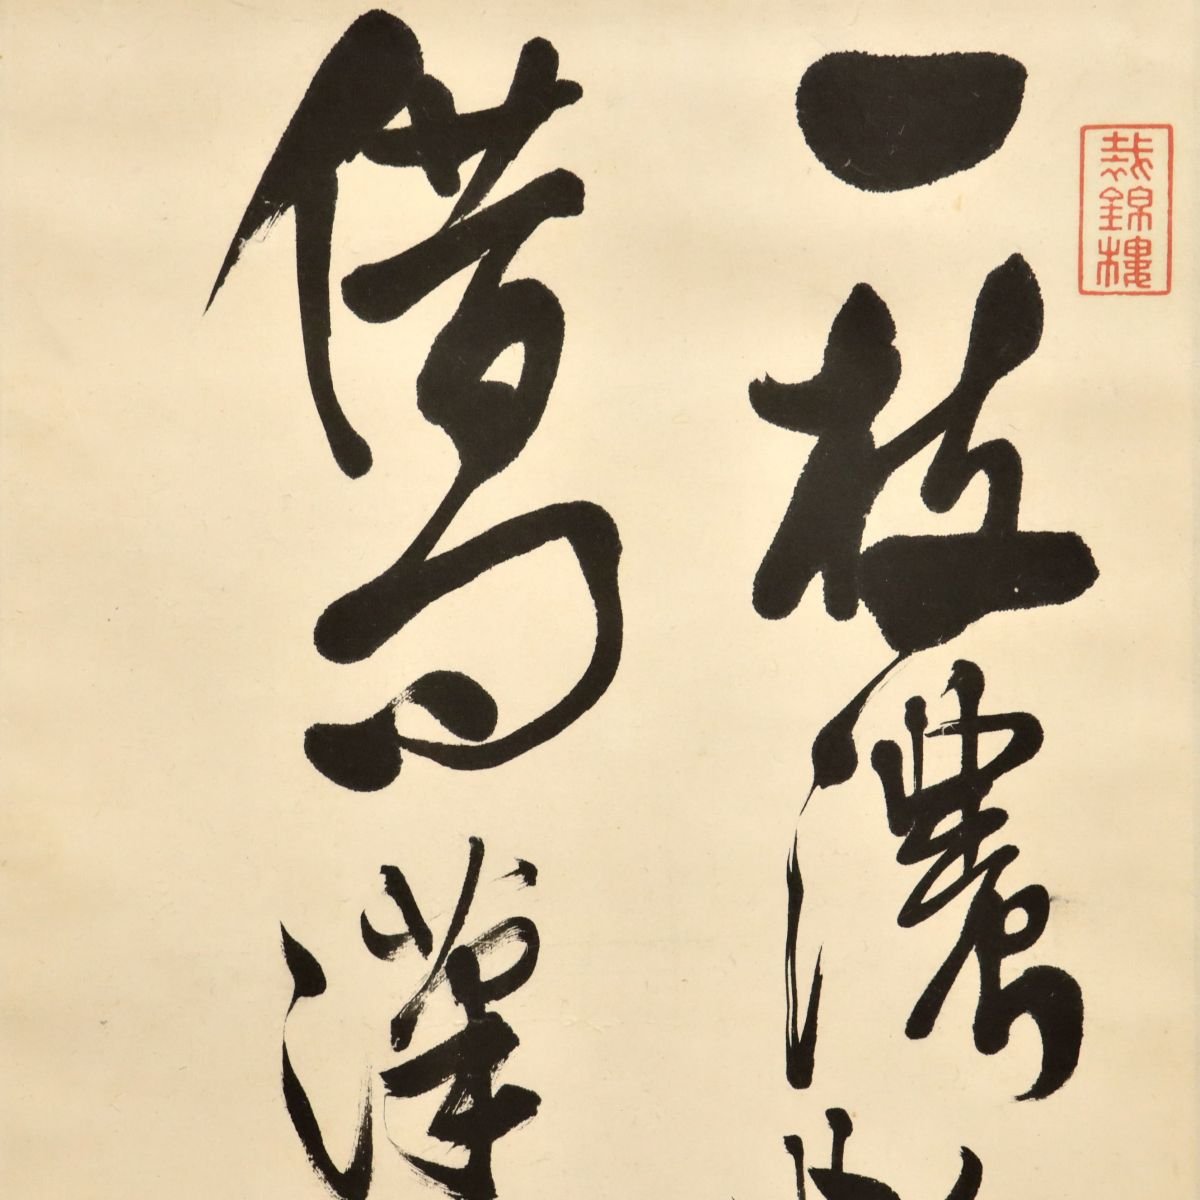 一枝濃
借問漢
裁錦樓